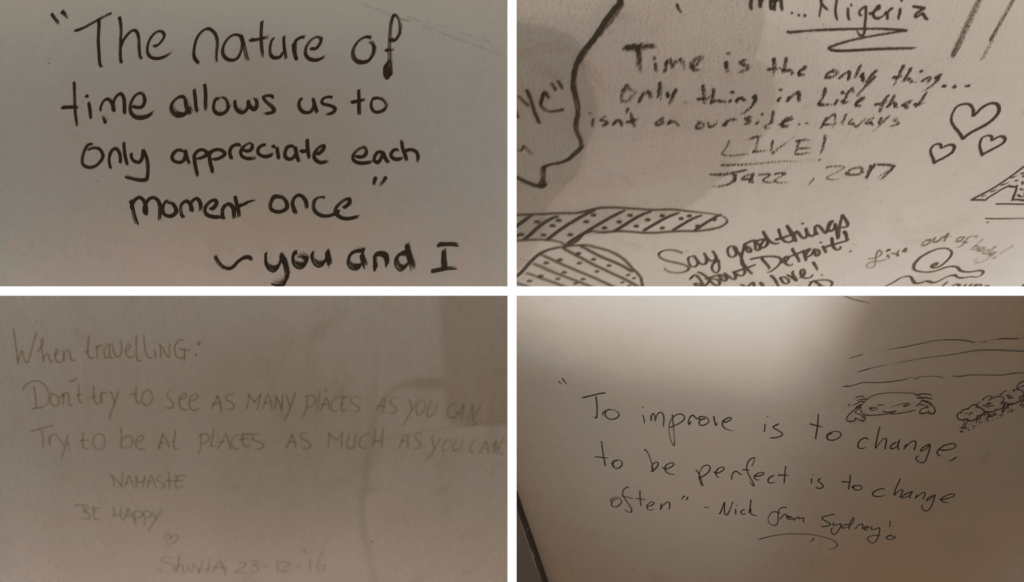 "The nature of
time allows us to
only appreciate each
moment once"
~you and I
... Nigeria
Time is the only thing...
only thing in Life that
isn't on our side.. Always
LIVE!
Jazz, 2017
Say good things
about Detroit!
love!
live out of body!
When travelling:
Don't try to see AS MANY PLACES AS YOU CAN
Try to be At PLACES AS MUCH AS YOU CAN
NAMASTE
BE HAPPY
ShiNJA 23-12-'16
"To improve is to change,
to be perfect is to change
often" - Nick from Sydney!